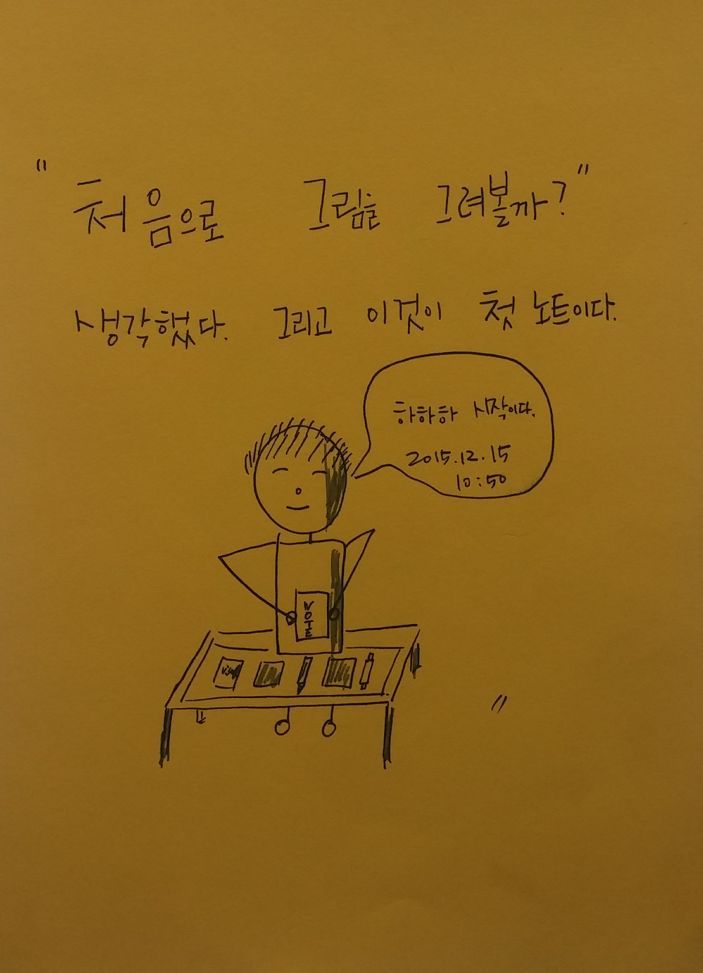 "처음으로 그림을 그려볼까?"
생각했다. 그리고 이것이 첫 노트이다.
하하하 시작이다.
2015.12.15
10:50
NOTE
"